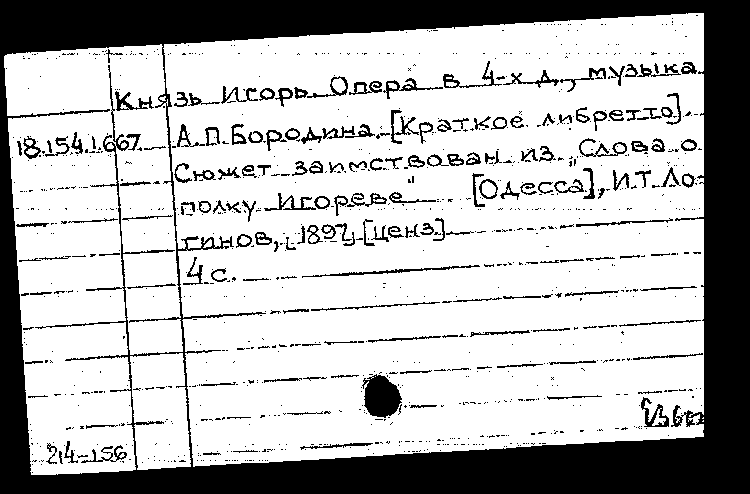 Князь Игорь. Опера в 4-х д., музыка
18.154.1.667 А.П. Бородина. [Краткое либретто].
Сюжет заимствован из „Слова о
полку Игореве“. [Одесса], И.Т. Ло-
гинов, [1897, [ценз.]
4 с.
24-156